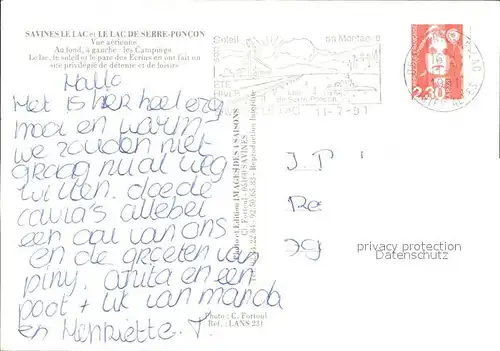 SAVINES LE LAC et LE LAC DE SERRE-PONÇON
Vue aérienne
Au fond, à gauche : les Campings
Le lac, le soleil et le parc des Ecrins en ont fait un
site privilégié de détente et de loisirs
Hallo
Het is hier heel erg
mooi en warm
we zouden niet
graag nu al weg
willen. doe de
cavia's allebei
een aai van ons
en de groeten van
piny. anita en een
poot + lik van manda
en Henriette.
Soleil en Montagne
ETE
HIVER
Lac
de Serre-Ponçon
11-7-91
2,30
Photo et Edition IMAGES DES 4 SAISONS
C. Fortoul - 05160 SAVINES
Reproduction Interdite
J. P
Re
79
privacy protection
Datenschutz
Photo : C. Fortoul
Réf. : LANS 231